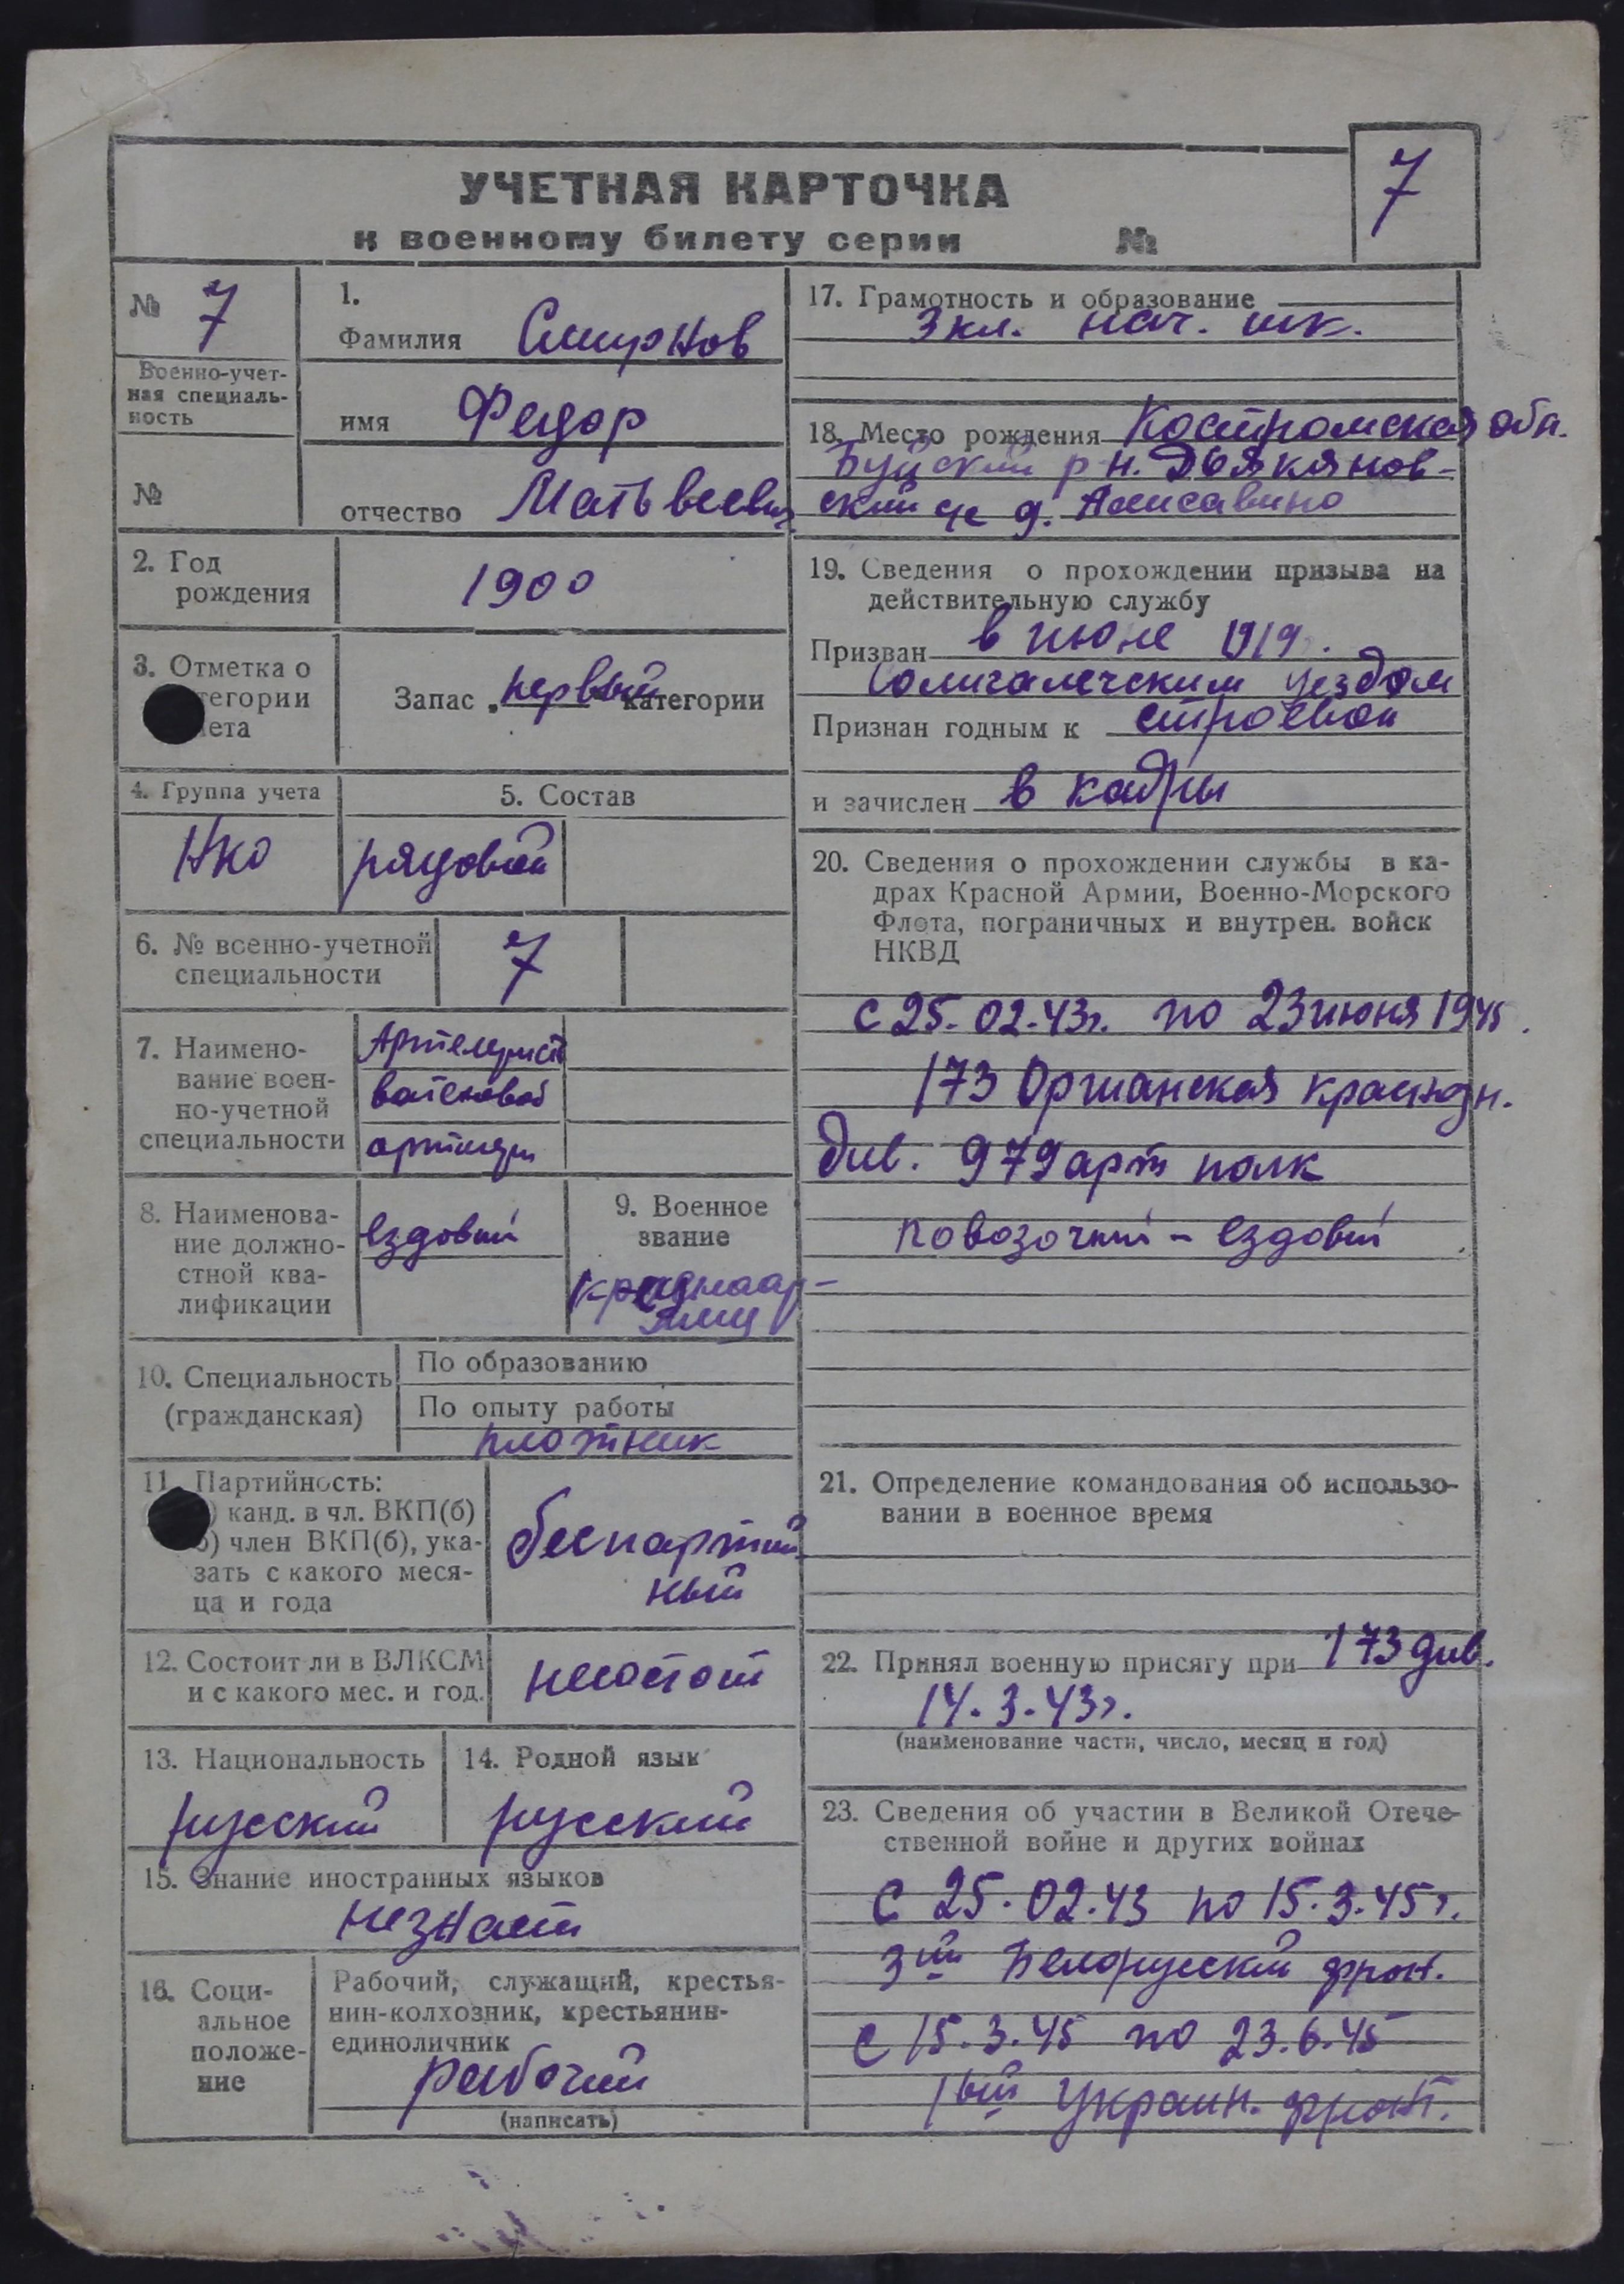 УЧЕТНАЯ КАРТОЧКА
к военному билету серии №
7
№ 7
Военно-учет-
ная специаль-
ность
№
1.
Фамилия Смирнов
имя Федор
отчество Матьвеевич
2. Год
рождения
1900
3. Отметка о
тегории
ета
Запас „первый“ категории
4. Группа учета
НКО
5. Состав
рядовой
6. № военно-учетной
специальности
7
7. Наимено-
вание воен-
но-учетной
специальности
8. Наименова-
ние должно-
стной ква-
лификации
ездовый
9. Военное
звание
красноар-
10. Специальность
(гражданская)
По образованию
По опыту работы
плотник
11. Партийность:
) канд. в чл. ВКП(б)
б) член ВКП(б), ука-
зать с какого меся-
ца и года
беспартий
ный
12. Состоит ли в ВЛКСМ
и с какого мес. и год.
несостоит
13. Национальность
русский
14. Родной язык
русский
15. Знание иностранных языков
незнает
16. Соци-
альное
положе-
ние
Рабочий, служащий, крестья-
нин-колхозник, крестьянин-
единоличник
рабочий
(написать)
17. Грамотность и образование
3 кл. нач. шк.
18. Место рождения Костромская обл.
Буйский р н. Дьяконов-
ский д.
19. Сведения о прохождении призыва на
действительную службу
Призван в июне 1919.
Солигалечским уездом
Признан годным к строевой
и зачислен в кадры
20. Сведения о прохождении службы в ка-
драх Красной Армии, Военно-Морского
Флота, пограничных и внутрен. войск
НКВД
с 25.02.43г. по 23 июня 1945.
173 Оршанская краснозн.
див. 979 арт полк
повозочный - ездовый
21. Определение командования об использо-
вании в военное время
22. Принял военную присягу при 173 див.
14.3.43г.
(наименование части, число, месяц и год)
23. Сведения об участии в Великой Отече-
ственной войне и других войнах
С 25.02.43 по 15.3.45г.
3ий Белорусский фрон.
с 15.3.45 по 23.6.45
1ый Украин. фронт.